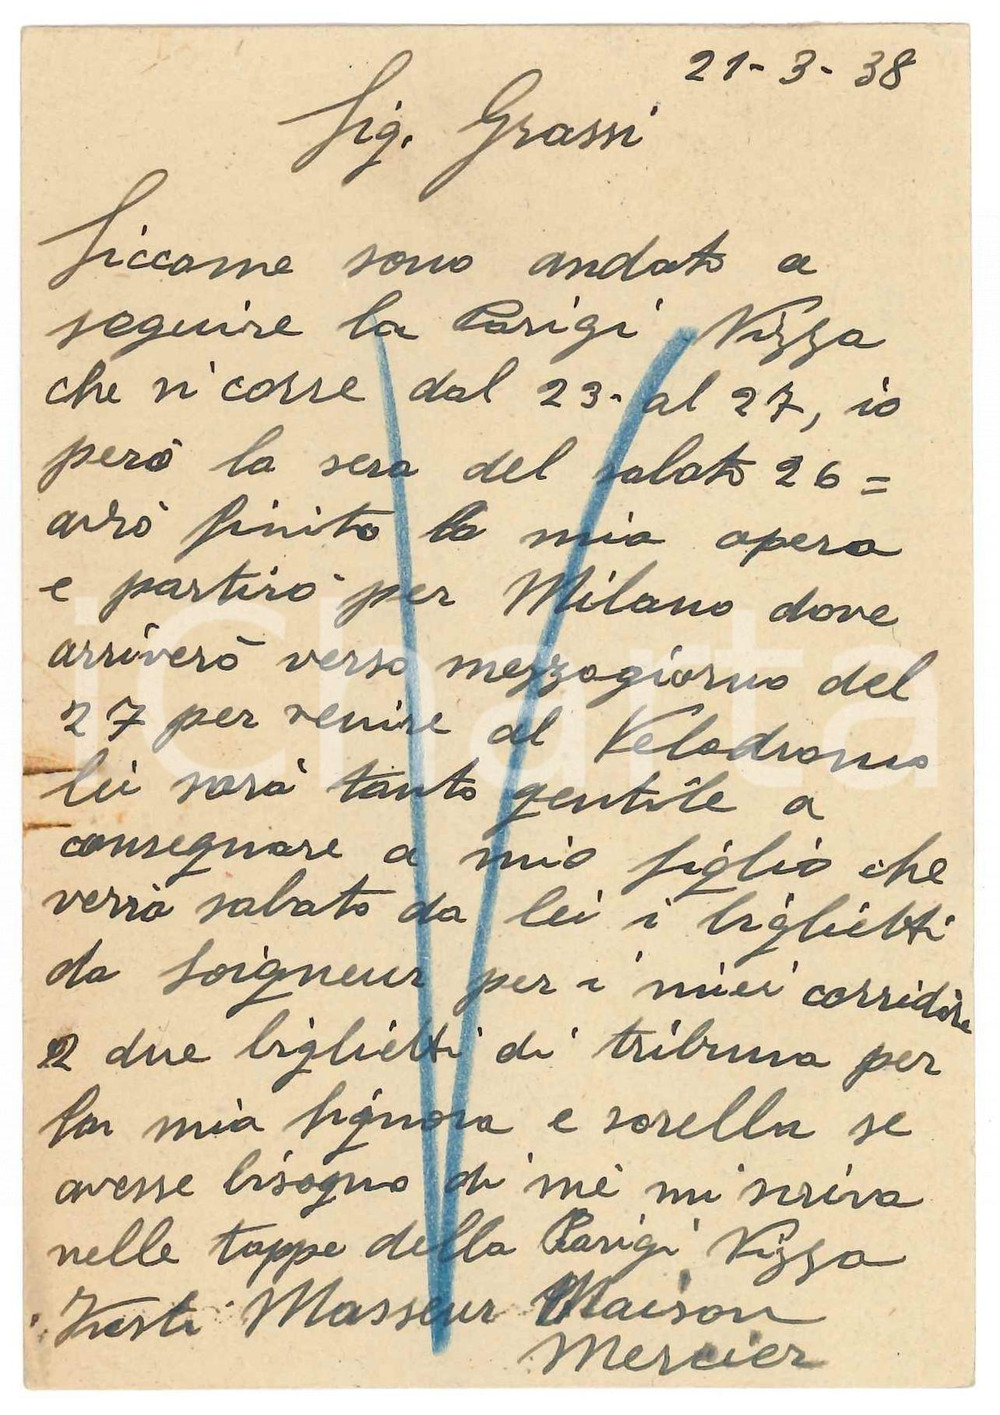 21-3-38
Sig. Grassi
Siccome sono andato a
seguire la Parigi Nizza
che si corre dal 23- al 27, io
però la sera del sabato 26=
avrò finito la mia opera
e partirò per Milano dove
arriverò verso mezzogiorno del
27 per venire al Velodromo
lei sarà tanto gentile a
consegnare a mio figlio che
verrà sabato da lei i biglietti
da soigneur per i miei corridori
2 due biglietti di tribuna per
la mia signora e sorella se
avesse bisogno di me mi scriva
nelle tappe della Parigi Nizza
Masseur Maison
Mercier
Charta